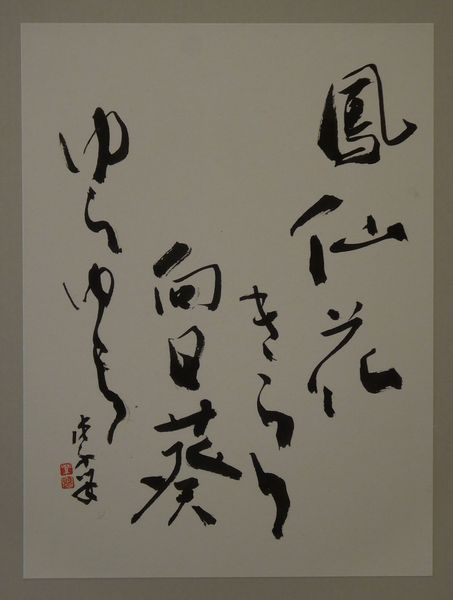 鳳仙花
きらり
向日葵
ゆらゆら